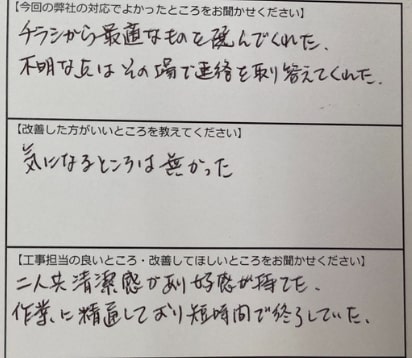 【今回の弊社の対応でよかったところをお聞かせください】
チラシから最適なものを選んでくれた.
不明な点はその場で連絡を取り答えてくれた.
【改善した方がいいところを教えてください】
気になるところは無かった
【工事担当の良いところ・改善してほしいところをお聞かせください】
二人共清潔感があり好感が持てた.
作業に精通しており短時間で終了していた.